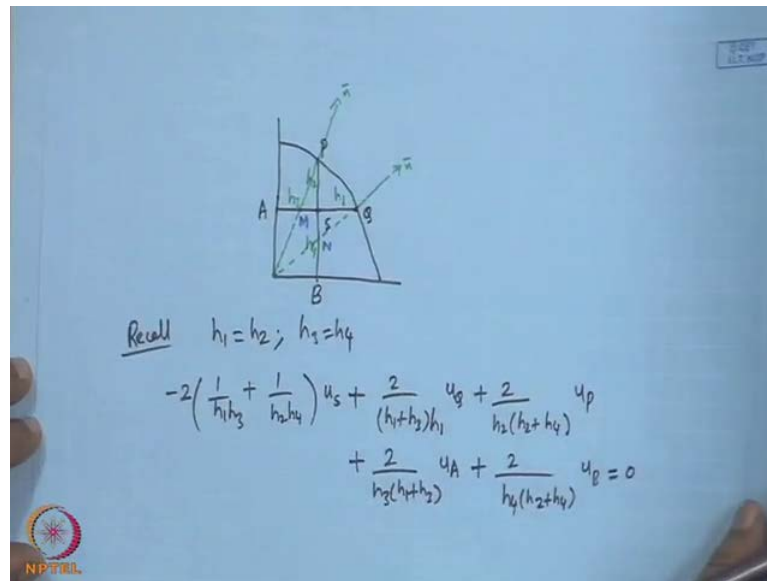 n̄
P
n̄
h₂
A h₃ h₁ Q
M S
N
h₄
B
Recall h₁ = h₂ ; h₃ = h₄
-2( 1/(h₁h₃) + 1/(h₂h₄) ) u_S + 2/((h₁+h₃)h₁) u_Q + 2/(h₂(h₂+h₄)) u_P
+ 2/(h₃(h₁+h₃)) u_A + 2/(h₄(h₂+h₄)) u_B = 0
NPTEL